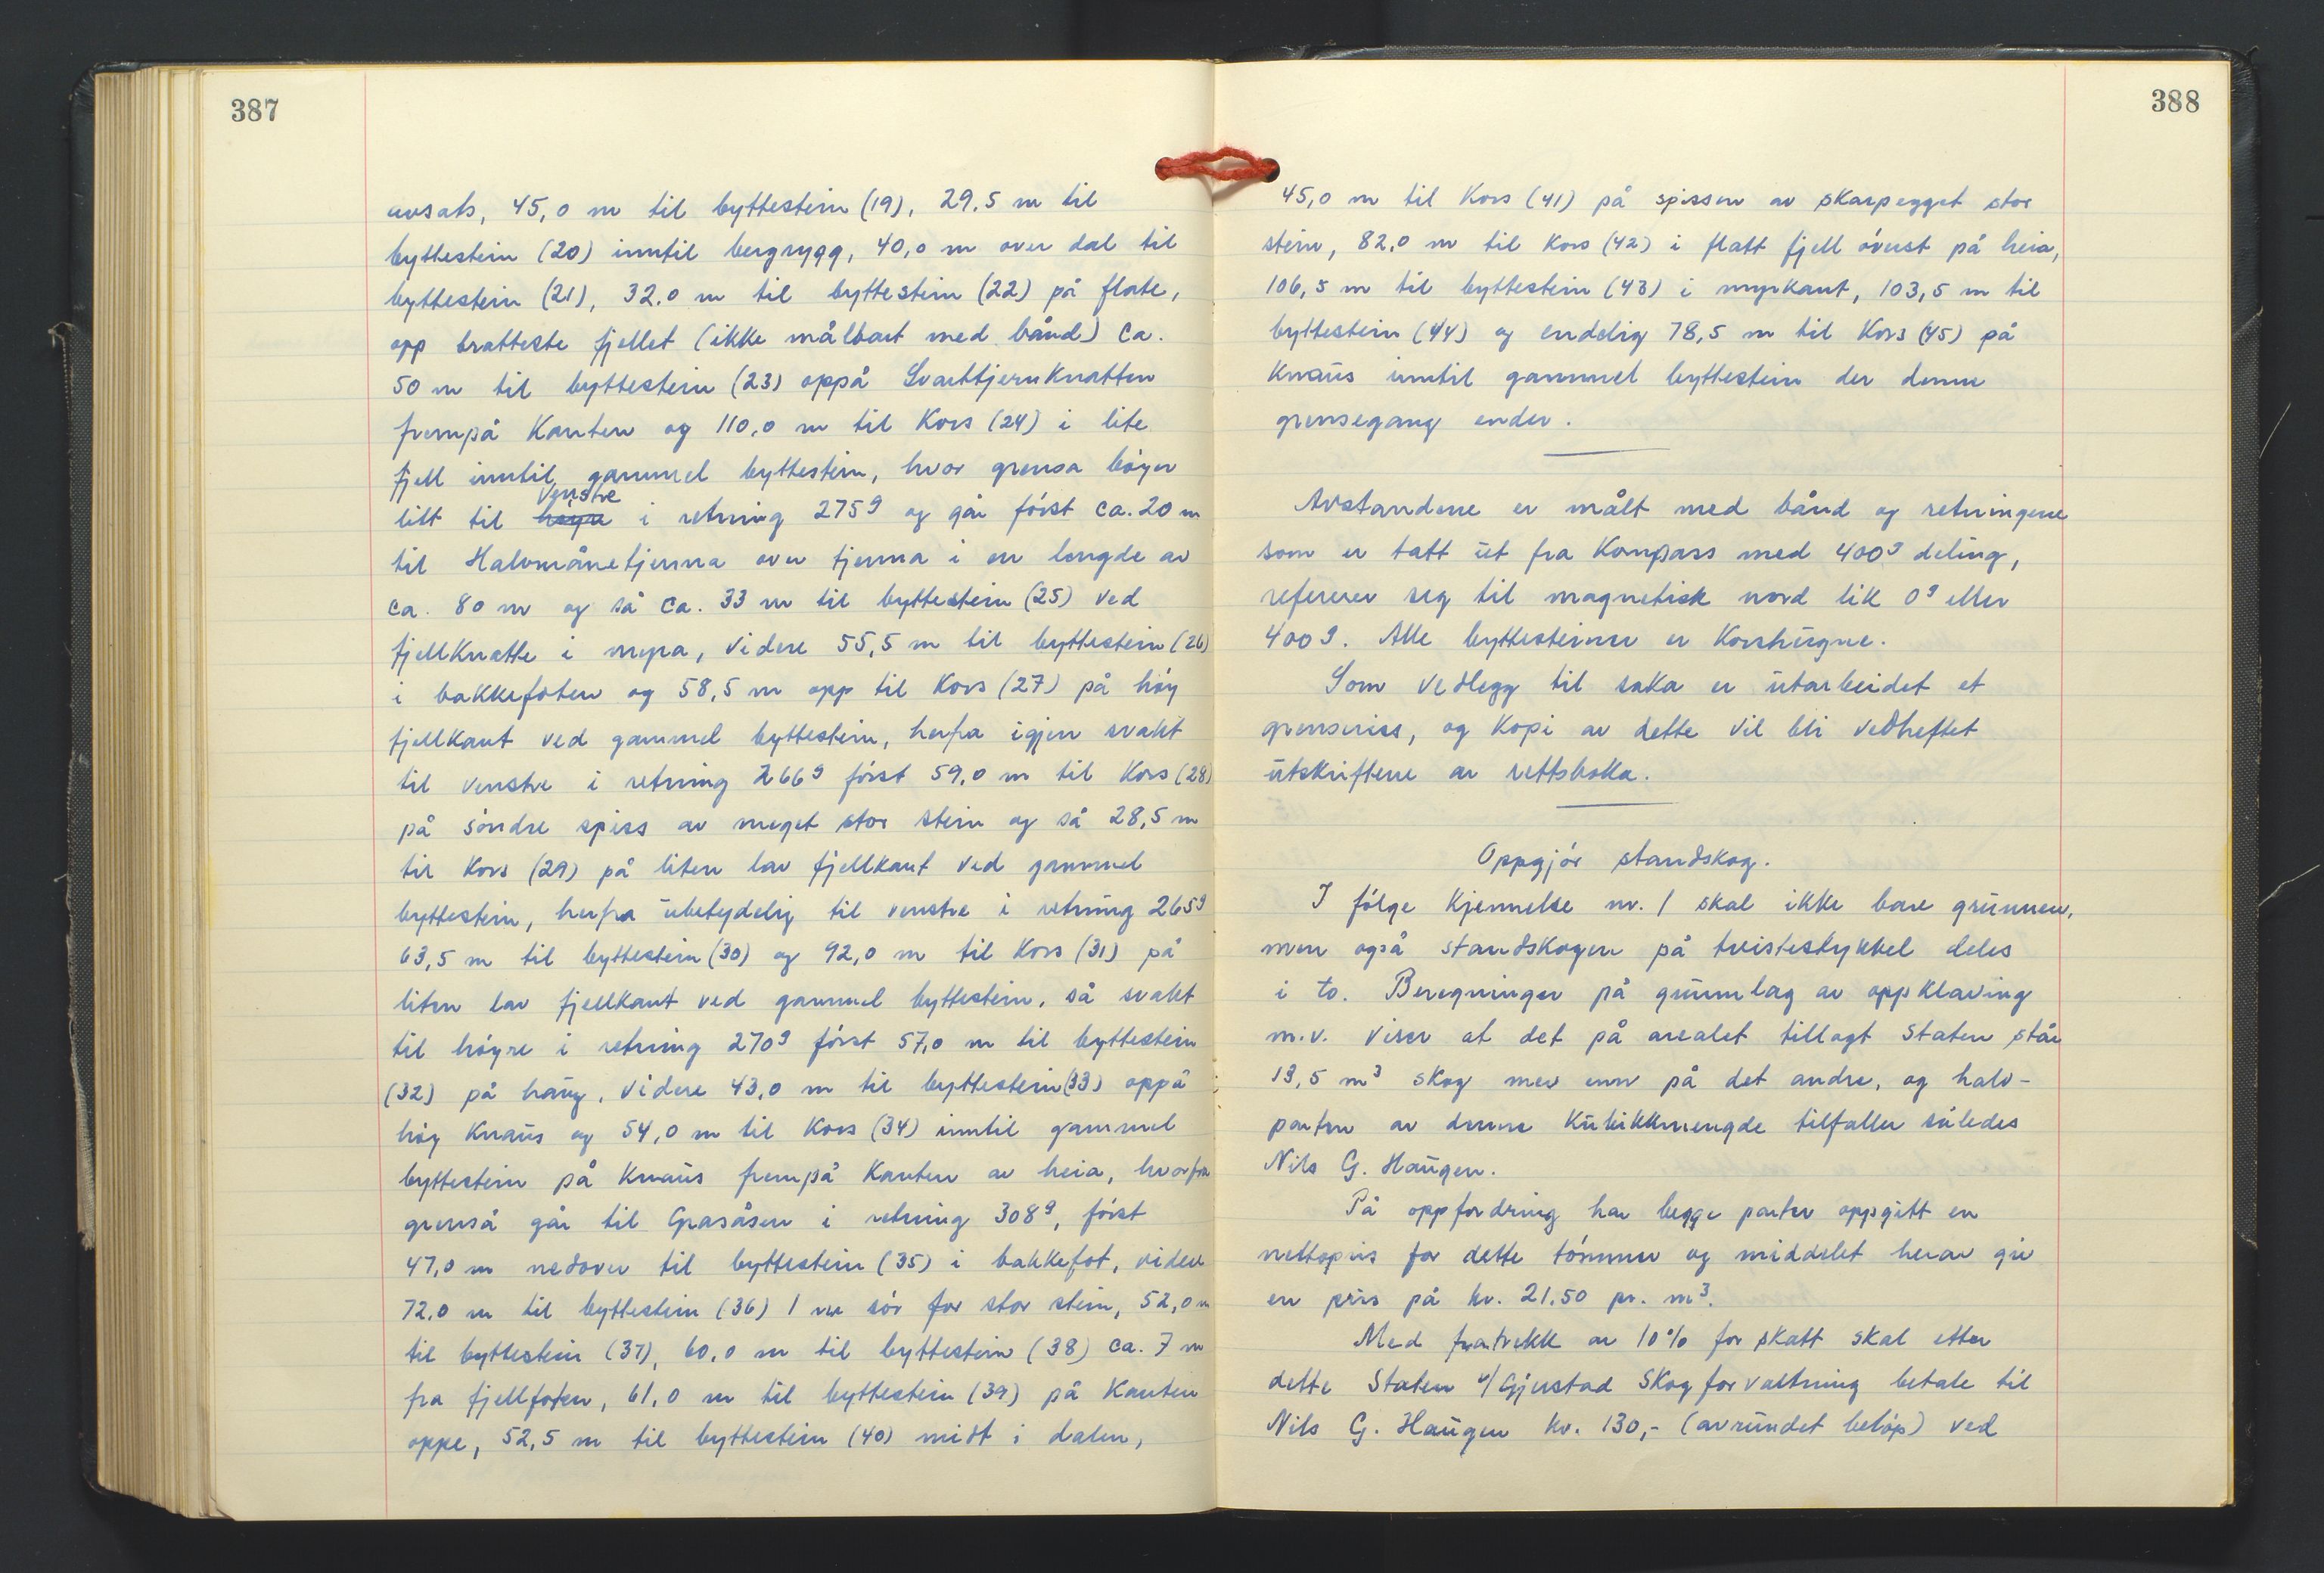 387
avsats, 45,0 m til byttestein (19), 29,5 m til
byttestein (20) inntil bergrygg, 40,0 m over dal til
byttestein (21), 32,0 m til byttestein (22) på flate,
opp bratteste fjellet (ikke målbart med bånd) ca.
50 m til byttestein (23) oppå Svarttjernknatten
frempå kanten og 110,0 m til kors (24) i lite
fjell inntil gammel byttestein, hvor grensa bøyer
litt til høyre venstre i retning 275g og går først ca. 20 m
til Halvmånetjenna over tjenna i en lengde av
ca. 80 m og så ca. 33 m til byttestein (25) ved
fjellknatte i myra, videre 55,5 m til byttestein (26)
i bakkefoten og 58,5 m opp til kors (27) på høy
fjellkant ved gammel byttestein, herfra igjen svakt
til venstre i retning 266g først 59,0 m til kors (28)
på søndre spiss av meget stor stein og så 28,5 m
til kors (29) på liten lav fjellkant ved gammel
byttestein, herfra ubetydelig til venstre i retning 265g
63,5 m til byttestein (30) og 92,0 m til kors (31) på
liten lav fjellkant ved gammel byttestein, så svakt
til høyre i retning 270g først 57,0 m til byttestein
(32) på haug, videre 43,0 m til byttestein (33) oppå
høy knaus og 54,0 m til kors (34) inntil gammel
byttestein på knaus frempå kanten av heia, hvorfra
grensa går til Grasåsen i retning 308g, først
47,0 m nedover til byttestein (35) i bakkefot, videre
72,0 m til byttestein (36) 1 m sør for stor stein, 52,0 m
til byttestein (37), 60,0 m til byttestein (38) ca. 7 m
fra fjellfoten, 61,0 m til byttestein (39) på kanten
oppe, 52,5 m til byttestein (40) midt i dalen,
388
45,0 m til kors (41) på spissen av skarpegget stor
stein, 82,0 m til kors (42) i flatt fjell øverst på heia,
106,5 m til byttestein (43) i myrkant, 103,5 m til
byttestein (44) og endelig 78,5 m til kors (45) på
knaus inntil gammel byttestein der denne
grensegang ender.
Avstandene er målt med bånd og retningene
som er tatt ut fra kompass med 400g deling,
referer seg til magnetisk nord lik 0g eller
400g. Alle byttesteiner er korshugne.
Som vedlegg til saka er utarbeidet et
grenseriss, og kopi av dette vil bli vedheftet
utskriftene av rettsboka.
Oppgjør standskog.
I følge kjennelse nr. 1 skal ikke bare grunnen,
men også standskogen på tvistestykket deles
i to. Beregninger på grunnlag av oppklaving
m.v. viser at det på arealet tillagt Staten står
13,5 m³ skog mer enn på det andre, og halv-
parten av denne kubikkmengde tilfaller således
Nils G. Haugen.
På oppfordring har begge parter oppgitt en
nettopris for dette tømmer og middelet herav gir
en pris på kr. 21.50 pr. m³.
Med fratrekk av 10% for skatt skal etter
dette Staten v/Gjerstad Skogforvaltning betale til
Nils G. Haugen kr. 130,- (avrundet beløp) ved